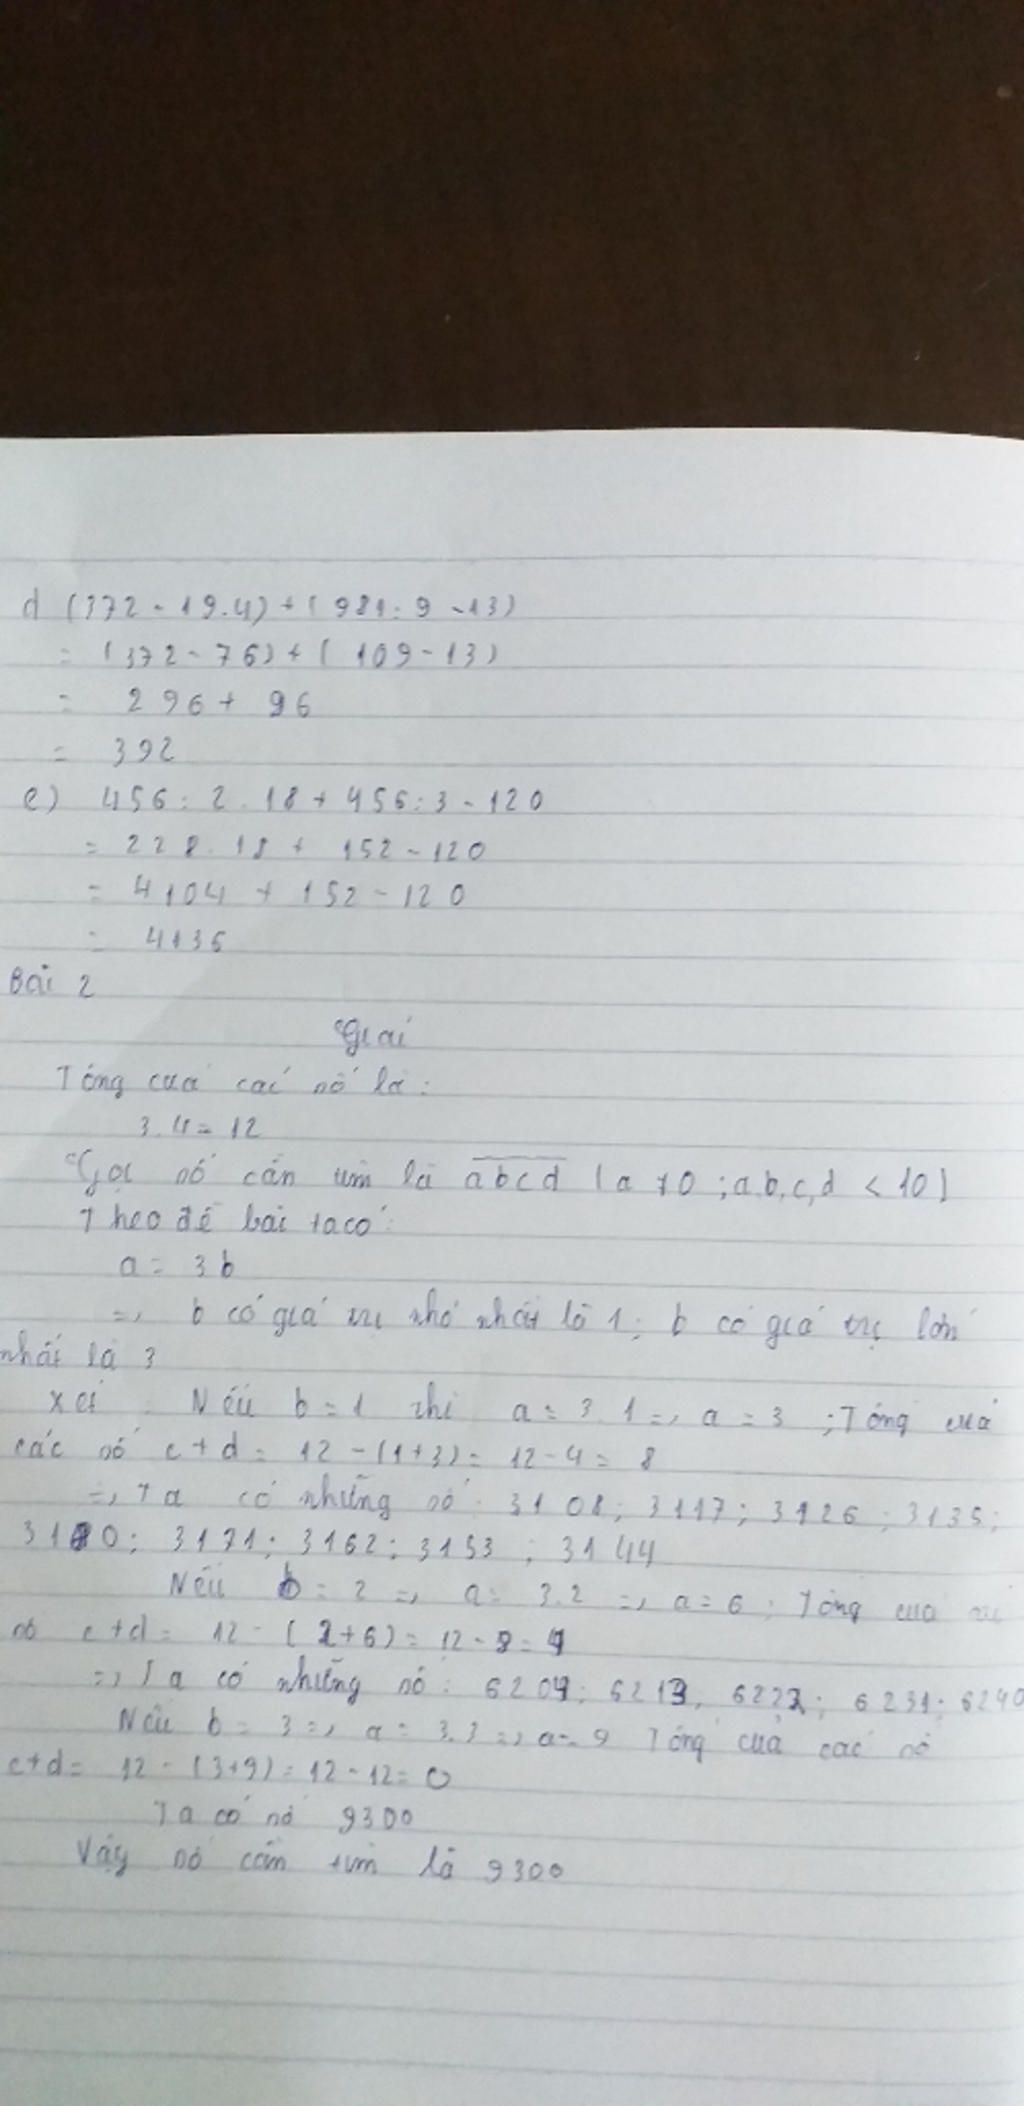 d (372 - 19.4) + ( 981 : 9 - 13)
= (372 - 76) + ( 109 - 13)
= 296 + 96
= 392
e) 456 : 2 . 18 + 456 : 3 - 120
= 228 . 18 + 152 - 120
= 4104 + 152 - 120
= 4136
Bài 2
Giải
Tổng của các số là :
3.4 = 12
Gọi số cần tìm là abcd ( a ≠ 0 ; a,b,c,d < 10 )
Theo đề bài ta có :
a = 3b
=> b có giá trị nhỏ nhất là 1; b có giá trị lớn
nhất là 3
Xét : Nếu b = 1 thì a = 3.1 => a = 3 ; Tổng của
các số c + d = 12 - (1+3) = 12 - 4 = 8
=> Ta có những số : 3108 ; 3117 ; 3126 ; 3135 ;
3180 ; 3171 ; 3162 ; 3153 ; 3144
Nếu b = 2 => a = 3.2 => a = 6 ; Tổng của
số c + d = 12 - ( 2+6) = 12 - 8 = 4
=> Ta có những số : 6204 ; 6213 ; 6222 ; 6231 ; 6240
Nếu b = 3 => a = 3.3 => a = 9 Tổng của các số
c+d = 12 - (3+9) = 12 - 12 = 0
Ta có số 9300
Vậy số cần tìm là 9300